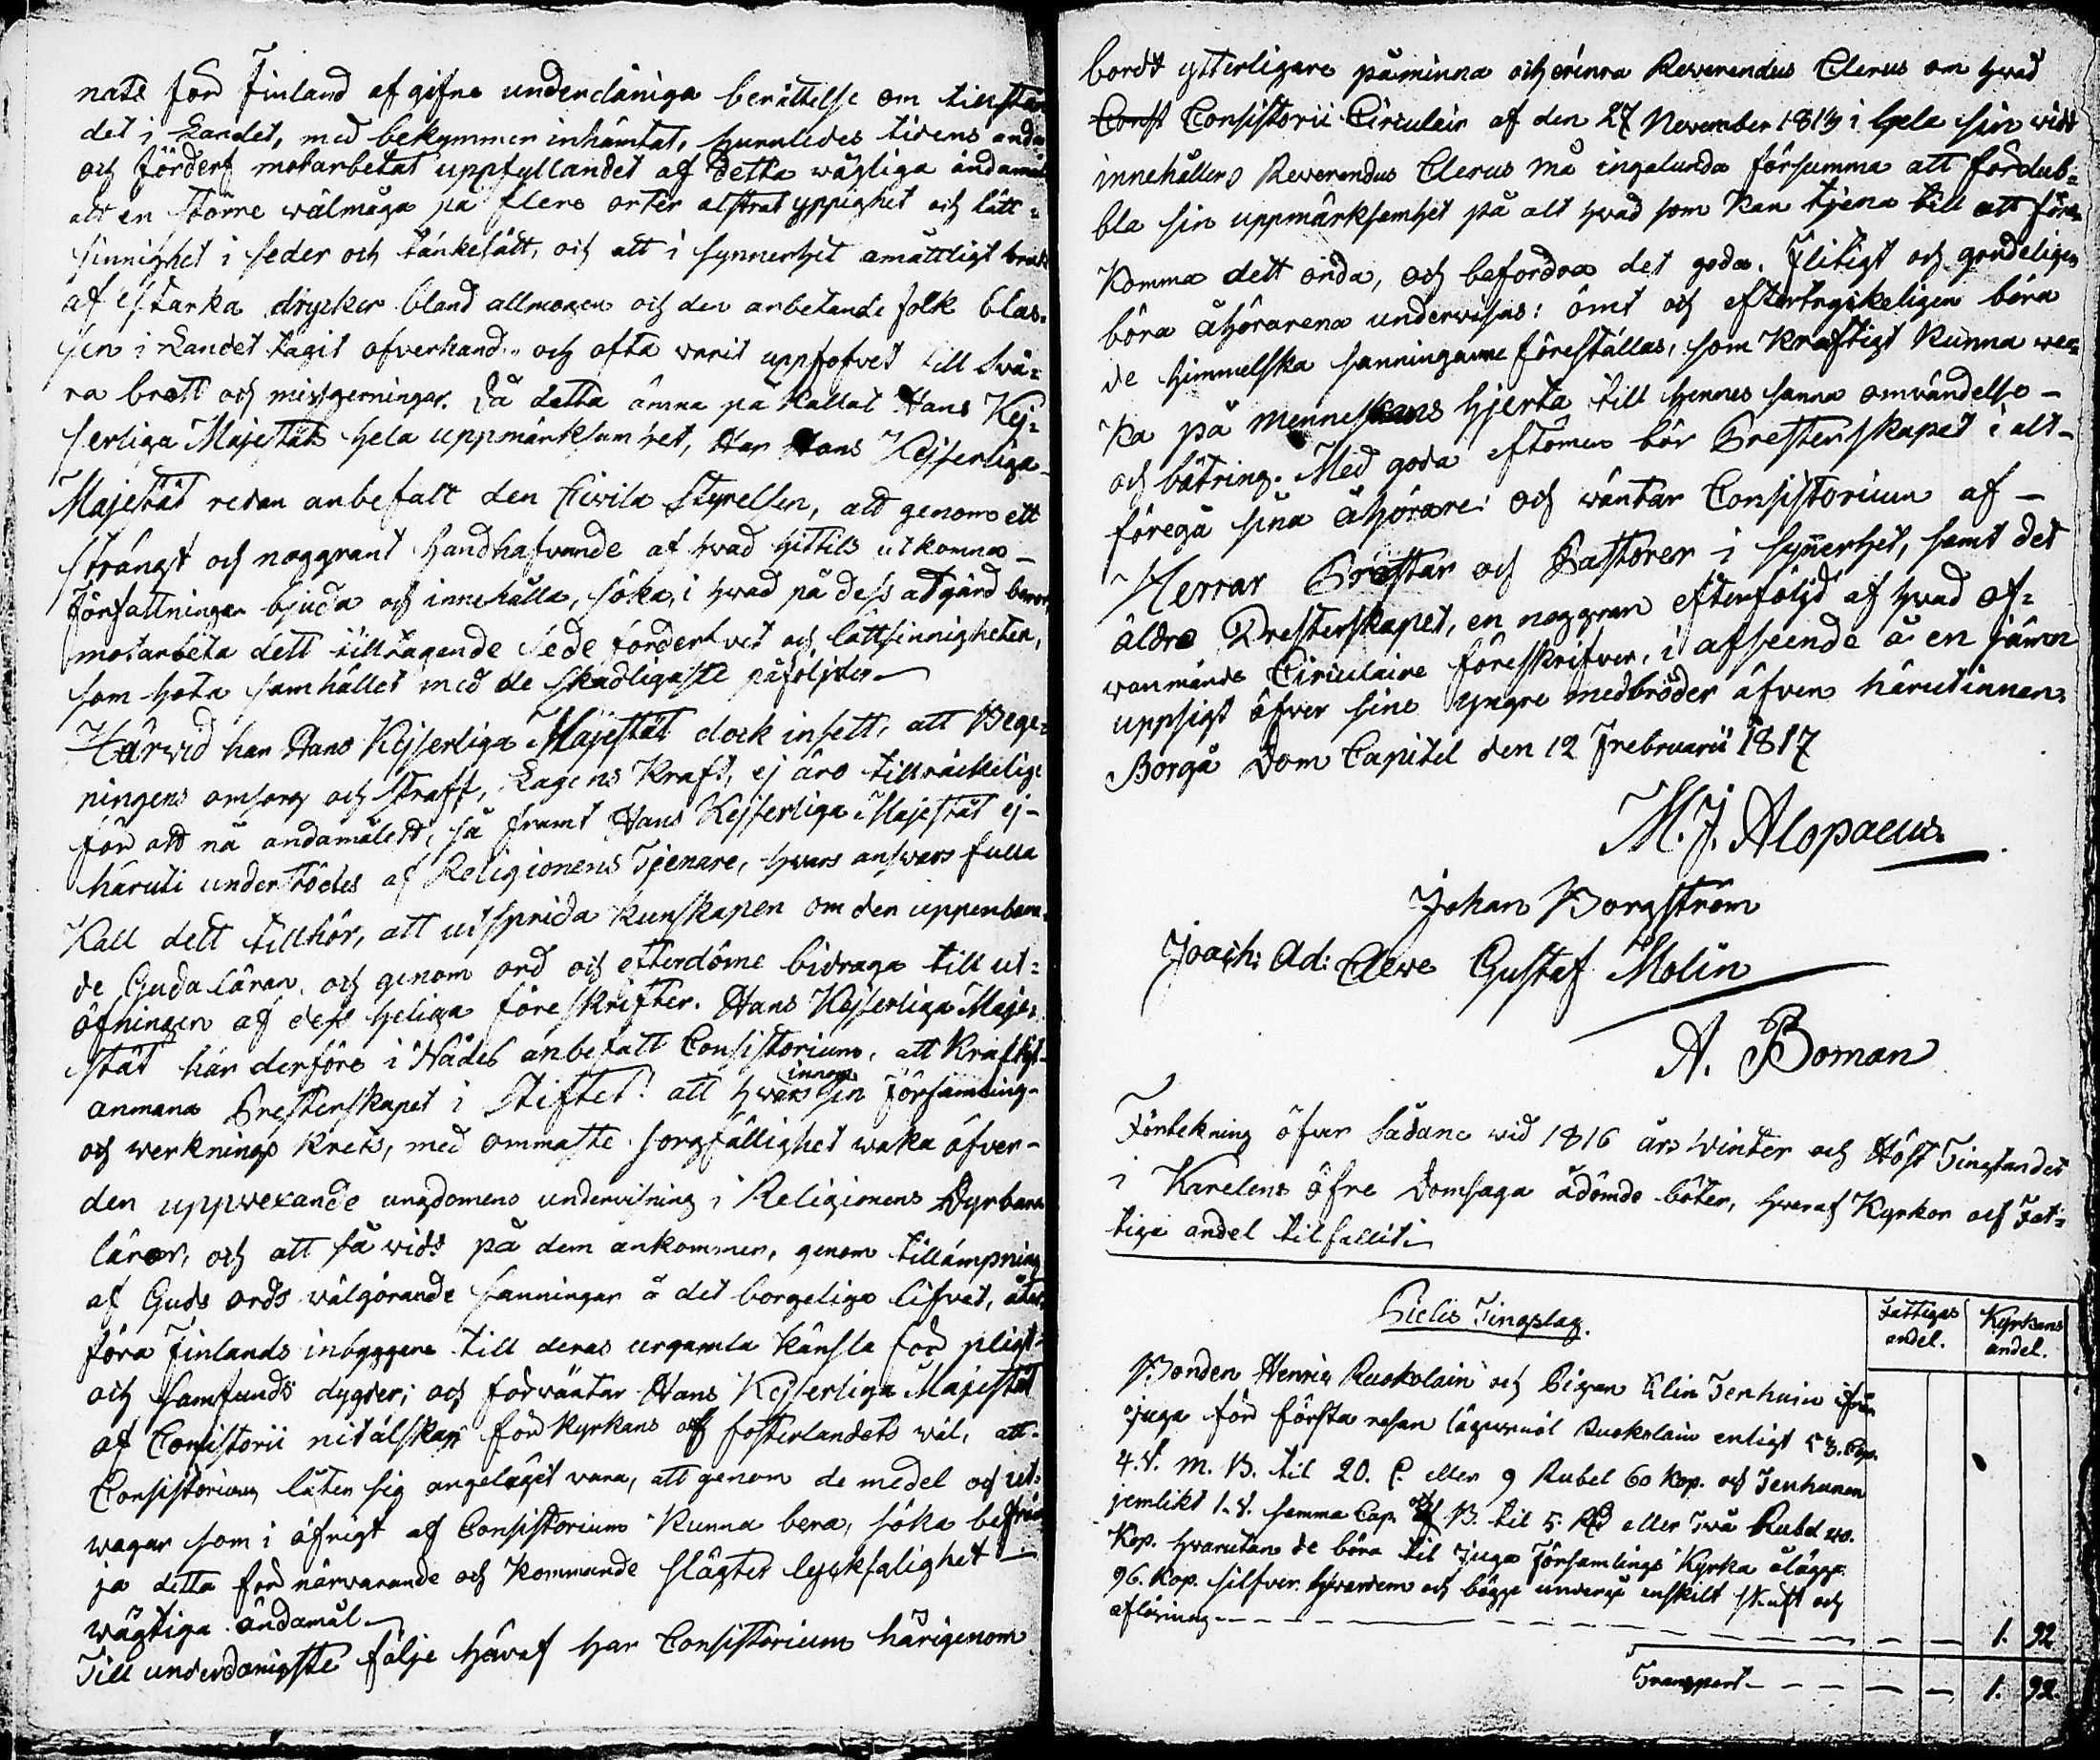 nats för Finland afgifne underdåniga berättelse om tillstån
det i Landet, med bekymmer inhämtat, huruledes tidens anda
och förderf motarbetat uppfyllandet af detta wigtiga ändamål
att en större wälmåga på flere orter alstrat yppighet och lätt-
sinnighet i seder och tänkesätt, och att i synnerhet omåttligt bruk
af starka drycker bland allmogen och den arbetande folk klas-
sen i Landet tagit öfverhand, och ofta varit upphofvet till Svå-
ra brott och missgerningar. Då detta ämne påkallat Hans Kej-
serliga Majestäts hela uppmärksamhet, Har Hans Kejserliga
Majestät redan anbefalt den Civila Styrelsen, att genom ett
strängt och noggrant handhafvande af hvad hittils utkomne
författningar bjuda och innehålla, söka, i hvad på dess åtgärd beror,
motarbeta dett tilltagande Sedeförderfvet och lättsinnigheten,
som hota samhället med de skadligaste påföljder.
Härvid har Hans Kejserliga Majestät dock insett, att Rege-
ringens omsorg och straff, Lagens Kraft, ej äro tillräckelige
för att nå ändamålet, så framt Hans Kejserliga Majestät ej
häruti understödes af Religionens Tjenare, hvars answarsfulla
Kall dett tillhör, att utsprida kunskapen om den uppenbara-
de Gudaläran, och genom ord och efterdöme bidraga till ut-
öfningen af dess heliga föreskrifter. Hans Kejserliga Maje-
stät har derföre i Nåder anbefalt Consistorium, att Kraftigt
anmana Presterskapet i Stiftet: att hwar innom sin Församling
och werknings Krets, med ömmaste sorgfällighet waka öfver
den uppwexande ungdomens undervisning i Religionens Dyrbara
läror, och att så vidt på dem ankommer, genom tillämpning
af Guds ords wälgörande sanningar å det borgeliga lifvet, åter-
föra Finlands inbyggare till deras urgamla känsla för pligt-
och samfunds dygder; och förwäntar Hans Kejserliga Majestät
af Consistorii nitälskan för kyrkans och fosterlandets wäl, att
Consistorium låter sig angeläget vara, att genom de medel och ut-
wägar som i öfrigt af Consistorium kunna bero, söka befräm-
ja detta för närvarande och kommande Slägter lycksalighet
wigtiga ändamål.
Till underdånigste följe häraf har Consistorium härigenom
bordt ytterligare påminna och erinra Reverendus Clerus om hvad
Const Consistorii Circulair af den 27 November 1813 i hela sin vidd
innehåller, Reverendus Clerus må ingalunda försumma att fördub-
bla sin uppmärksamhet på alt hvad som kan tjena till att före-
komma dett onda, och befordra det goda. Flitigt och grundeligen
böra åhörarena undervisas: ömt och eftertryckeligen böra
de himmelska sanningarne föreställas, som kraftigt kunna wer-
ka på Menneskans hjerta till hennes sanna omvändelse
och bättring. Med goda eftömen bör Presterskapet i alt
föregå sina åhörare: och wäntar Consistorium af
Herrar Prostar och Pastorer i synnerhet, samt det
äldre Presterskapet, en noggran efterföljd af hvad of-
wanmände Circulaire föreskrifver, i afseende å en jämn
uppsigt öfver sine yngre medbröder äfven härutinnan.
Borgå Dom Capitel den 12 Februarii 1817
M. J. Alopaeus.
Johan Borgström
Joach: Ad: Cleve Gustaf Molin
A. Boman
Förtekning öfver Sådane vid 1816 års Winter och Höst Tingtandet
i Karelens öfre Domsaga ådömde böter, hvaraf Kyrkor och Fat-
tiga andel tilfallit.
Pielis Tingslag.
Fattigas andel.
Kyrkans andel.
Bonden Henric Ruokolain och Pigan Elin Ienhuin ifrån
Juga för första resan lägersmål Ruokolain enligt 53. Cap.
4. §. M. B. til 20. P. eller 9 Rubel 60 Kop. och Ienhunen
jemlikt 1. §. samma Cap. och B. til 5. RD eller Två Rubel 40.
Kop. hvarutan de böra til Juga Församlings Kyrka ålägge
96. Kop. silfver hvardera och bägge undergå enskilt skrift och
aflösning - - - 1. 92
Transport - - - 1. 92.